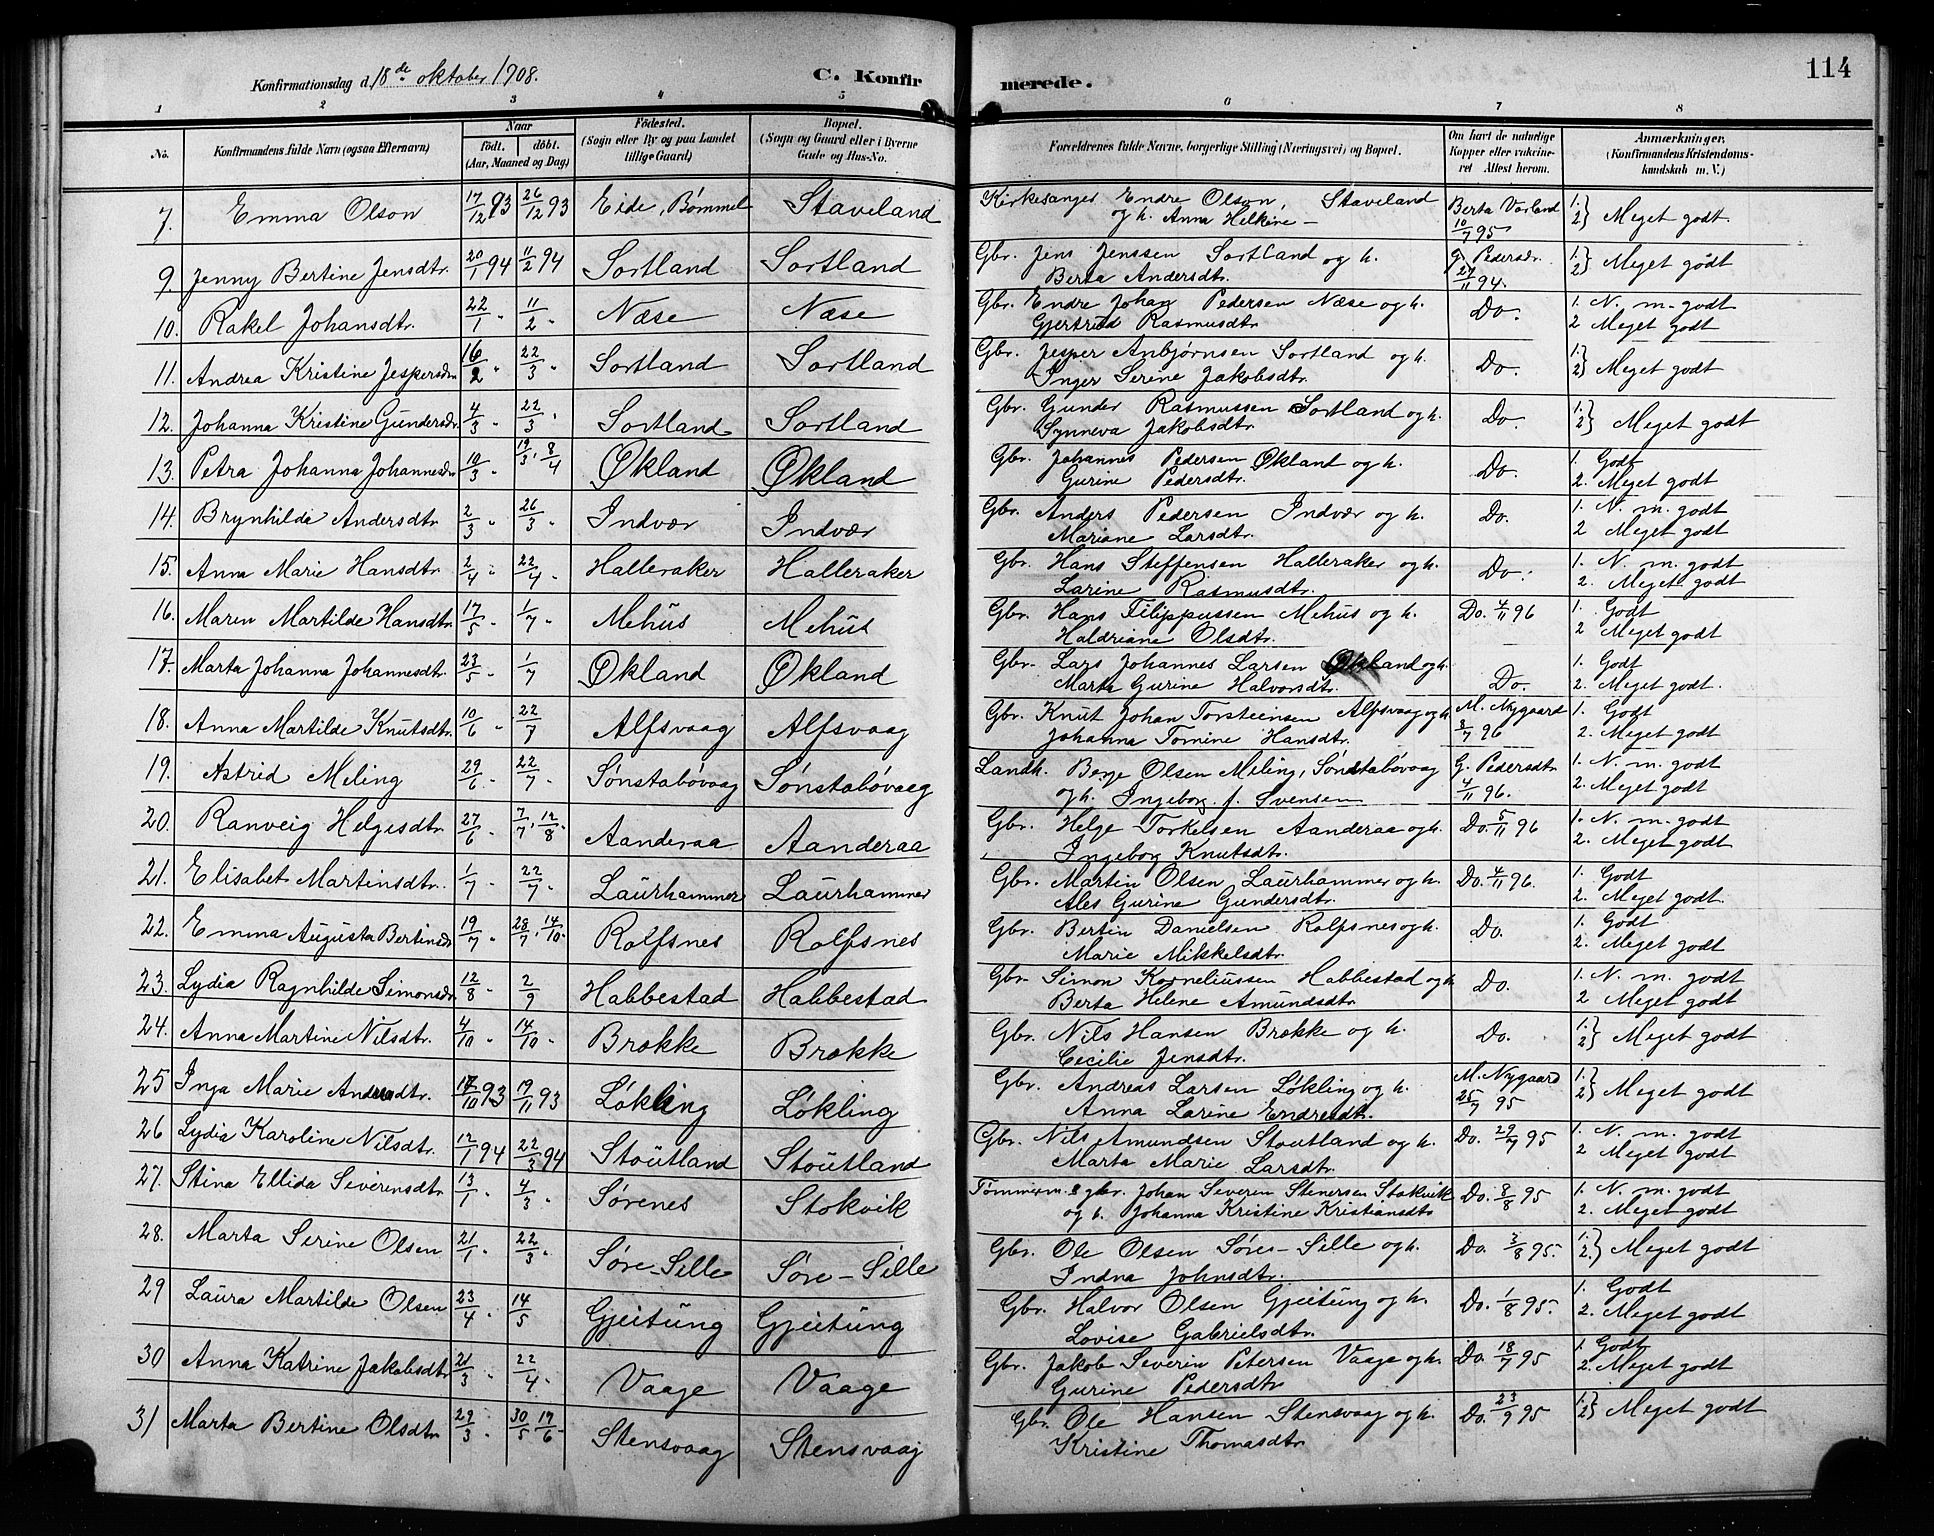 114
Konfirmationsdag d. 18de oktober 1908.
C. Konfirmerede.
1 2 3 4 5 6 7 8
No. Konfirmandens fulde Navn (ogsaa Efternavn) Naar født. døbt. (Aar, Maaned og Dag) Födested. (Sogn eller By og paa Landet tillige Gaard) Bopæl. (Sogn og Gaard eller i Byerne Gade og Hus-No. Forældrenes fulde Navne, borgerlige Stilling (Næringsvei) og Bopæl. Om havt de naturlige Kopper eller vakcineret Attest herom. Anmærkninger. (Konfirmandens Kristendomskundskab m. V.)
7. Emma Olson 17/12 93 26/12 93 Eide, Bömmel Staveland Kirkesanger Endre Olson, Staveland Berta Vorland 1. 2} Meget godt.
og h. Anna Helkine — 10/7 95
9. Jenny Bertine Jensdtr. 20/1 94 11/2 94 Sortland Sortland Gbr. Jens Jenssen Sortland og h. G. Pedersdr. 1. 2} Meget godt
Berta Andersdtr. 27/11 94.
10. Rakel Johansdtr. 22/1 " 11/2 " Næse Næse Gbr. Endre Johan Pedersen Næse og h. Do. 1. N. m. godt
Gjertrud Rasmusdtr. 2 Meget godt
11. Andrea Kristine Jespersdr. 16/2 " 22/3 " Sortland Sortland Gbr. Jesper Anbjørnsen Sortland og h. Do. 1. 2} Meget godt
Inger Serine Jakobsdtr.
12. Johanna Kristine Gundersdr. 4/3 " 22/3 " Sortland Sortland Gbr. Gunder Rasmussen Sortland og h. Do. 1. 2} Meget godt
Synneva Jakobsdtr.
13. Petra Johanna Johannesdr. 10/3 " 19/3, 8/4 Økland Økland Gbr. Johannes Pedersen Økland og h. Do. 1. Godt
Gurine Pedersdtr. 2. Meget godt
14. Brynhilda Andersdtr 2/3 " 26/3 " Indvær Indvær Gbr. Anders Pedersen Indvær og h. Do. 1. N. m. godt
Mariane Larsdtr. 2 Meget godt
15. Anna Marie Hansdtr. 2/4 " 22/4 " Halleraker Halleraker Gbr. Hans Steffensen Halleraker og h. Do. 1. N. m. godt
Larine Rasmusdtr. 2. Meget godt
16. Maren Martilde Hansdtr. 17/5 " 1/7 " Mehus Mehus Gbr. Hans Filippussen Mehus og h. Do. 4/11 96 1. Godt
Haldriane Olsdtr. 2 Meget godt
17. Marta Johanna Johannesdtr. 23/5 " 1/7 Økland Økland Gbr. Lars Johannes Larsen Økland og h. Do. 1. Godt
Marta Gurine Halvorsdtr. 2. Meget godt.
18. Anna Martilde Knutsdtr. 10/6 " 22/7 Alfsvaag Alfsvaag Gbr. Knut Johan Torsteinsen Alfsvaag og h. M. Nygaard 1. Godt
Johanna Tomine Hansdtr. 8/7 96 2. Meget godt
19. Astrid Meling 29/6 " 22/7 " Sønstabövaag Sønstabövaag Landh. Berje Olsen Meling, Sønstabövaag G. Pedersdtr 1. N. m. godt
og h. Ingeborg f. Svensen 4/11 96. 2. Meget godt
20. Ranveig Helgesdtr. 27/6 " 7/7, 12/8 " Aanderaa Aanderaa Gbr. Helge Torkelsen Aanderaa og h. Do. 5/11 96 1. N. m. godt
Ingeborg Knutsdtr. 2. Meget godt
21. Elisabet Martinsdtr. 1/7 " 22/7 " Laurhammer Laurhammer Gbr. Martin Olsen Laurhammer og h. Do. 4/11 96. 1. Godt
Ales Gurine Gundersdtr. 2. Meget godt
22. Emma Augusta Bertinsdr 19/7 " 28/7, 14/10. Rolfsnes Rolfsnes Gbr. Bertin Danielsen Rolfsnes og h. Do. 1. Godt
Marie Mikkelsdtr. 2. Meget godt
23. Lydia Ragnhilde Simonsdr 12/8 " 2/9 Habbestad Habbestad Gbr. Simon Korneliussen Habbestad og h Do. 1. N. m. godt
Berta Helene Amundsdtr. 2 Meget godt
24. Anna Martine Nilsdtr. 4/10 " 14/10 " Brokke Brokke Gbr. Nils Hansen Brokke og h. Do. 1. 2} Meget godt
Cecilie Jensdtr.
25 Inga Marie Andreasdtr. 17/10 93 19/11 93 Løkling Løkling Gbr. Andreas Larsen Løkling og h. M. Nygaard 1. 2} Meget godt
Anna Larine Endresdtr. 25/7 95
26 Lydia Karoline Nilsdtr. 12/1 94 22/3 94 Stoutland Stoutland Gbr. Nils Amundsen Stoutland og h. Do. 29/7 95 1. N. m. godt
Marta Marie Larsdtr 2 Meget godt
27. Stina Ellida Severensdtr. 13/1 " 4/3 " Sørenes Stokvik Tømmerm. & gbr. Johan Severen Stenersen Stokvik Do. 8/8 95 1. N. m. godt
og h. Johanna Kristine Kristiansdtr 2. Meget godt
28. Marta Serine Olsen 21/1 " 22/3 " Søre-Selle Søre-Selle Gbr. Ole Olsen Søre-Selle og h. Do. 3/8 95. 1. 2.} Meget godt
Indna Johnsdtr.
29 Laura Martilde Olsen 23/4 " 14/5 Gjeitung Gjeitung Gbr. Halvor Olsen Gjeitung og h. Do. 1/8 95. 1. Godt
Lovise Gabrielsdtr. 2. Meget godt
30 Anna Katrine Jakobsdtr 21/3 " 22/4 " Vaage Vaage Gbr. Jakob Severin Petersen Vaage og h. Do. 18/7 95 1. Godt
Gurine Pedersdtr 2. Meget godt
31 Marta Bertine Olsdtr. 29/3 " 30/5 17/6 Stensvaag Stensvaag Gbr. Ole Hansen Stensvaag og h. Do. 23/9 95 1. 2} Meget godt
Kristine Thomasdtr.